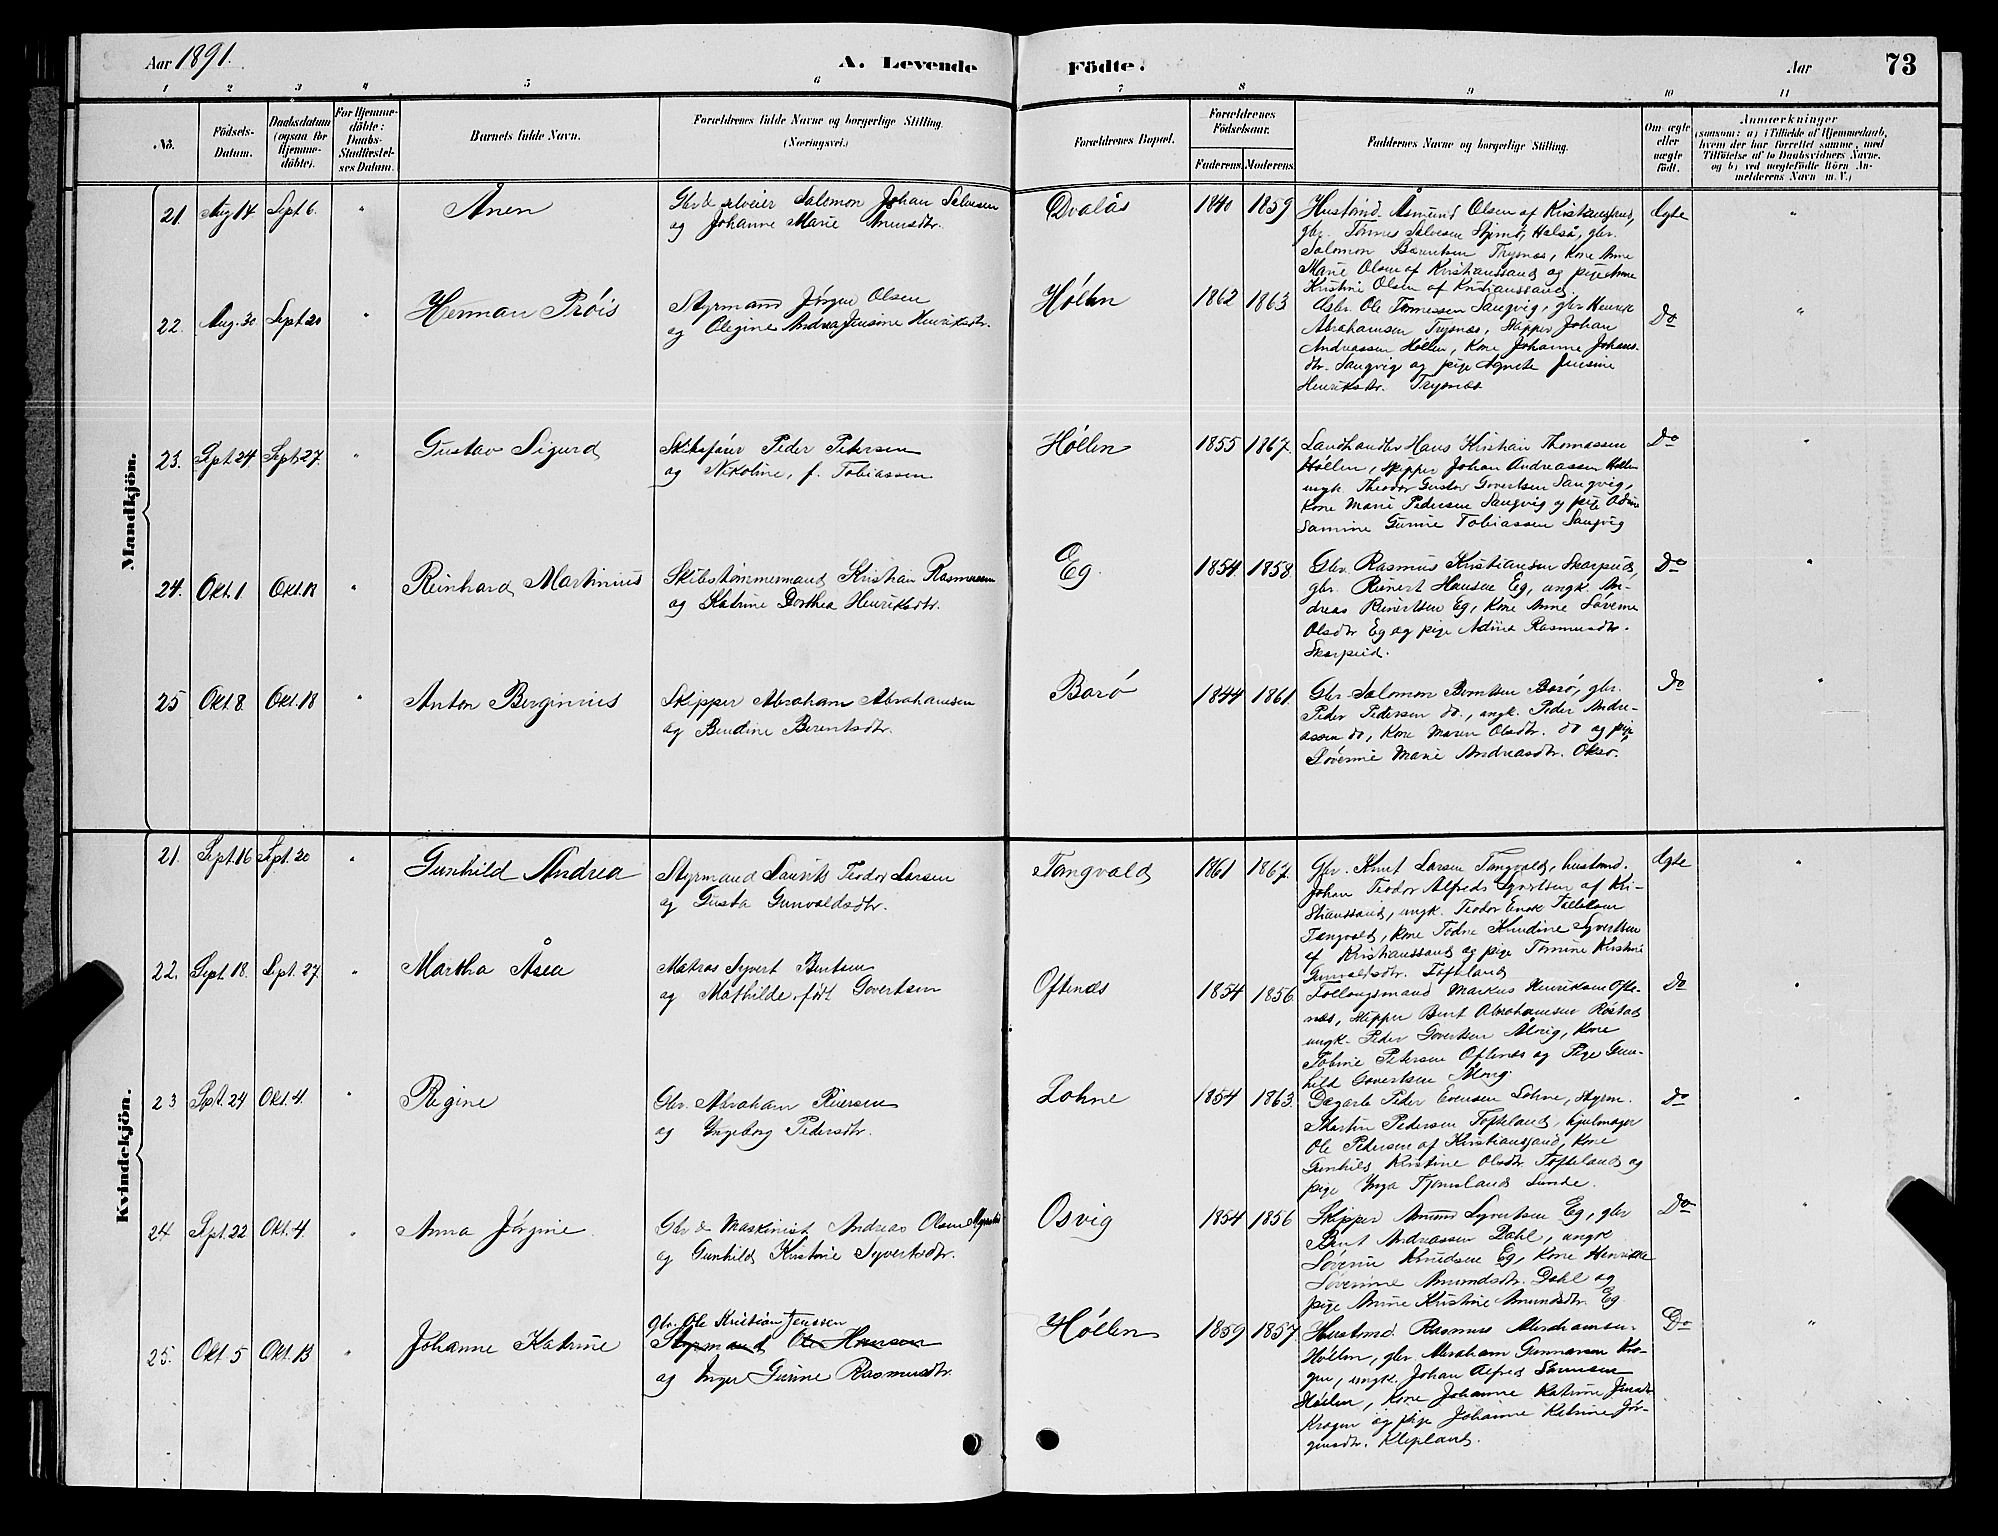 Aar 1891. A. Levende Födte. Aar 73
1 2 3 4 5 6 7 8 9 10 11
No. Födsels-Datum. Daabsdatum (ogsaa for Hjemmedöbte). For Hjemmedöbte: Daabs-Stadfæstelses Datum. Barnets fulde Navn. Forældrenes fulde Navne og borgerlige Stilling. (Næringsvei.) Forældrenes Bopæl. Forældrenes Födselsaar. Faderens. Moderens. Faddernes Navne og borgerlige Stilling. Om ægte eller uægte födt. Anmærkninger (saasom: a) i Tilfælde af Hjemmedaab, hvem der har forrettet samme, med Tilföielse af to Daabsvidners Navne, og b) ved uægtefödte Börn Anmelderens Navn m. V.)
Mandkjön.
21. Aug 14 Sept 6. " Anen
Salomon Johan Salvesen
og Johanne Marie
Dvalås 1840 1859
Hustmd. Åsmund Olsen af Kristianssand,
gbr. Tønnes Salvesen Halså, gbr.
Salomon Berntsen Trysnæs, Kone Anne
Marie Olsen af Kristianssand og pige Anne
Kristine Olsen af Kristianssand.
Ægte "
22. Aug. 30 Sept. 20 " Herman Prøis
Styrmand Jørgen Olsen
og Olegine Andrea Jensine Henriksdtr.
Høllen 1862 1863
Ole Tønnessen Langvig, gbr Henrik
Abrahamsen Trysnæs, Skipper Johan
Andreassen Høllen, Kone Johanne Johans-
dtr. Langvig og pige Agnete Jensine
Henriksdtr. Trysnæs
Do "
23. Sept. 24 Sept. 27. " Gustav Sigurd
Skibsfører Peder Petersen
og Nikoline, f. Tobiassen
Høllen 1855 1867.
Landhandler Hans Kristian Thomassen
Høllen, skipper Johan Andreassen Høllen
ungk. Theodor Gustav Govertsen Langvig,
Kone Marie Pedersen Langvig og pige
Samine Gurine Tobiassen Langvig
Do "
24. Okt. 1 Okt. 18 " Reinhard Martinius
Skibstømmermand Kristian Rasmussen
og Katrine Dorthea Henriksdtr.
Eg. 1854. 1858.
Gbr. Rasmus Kristiansen Skarpeid,
gbr. Reinert Hansen Eg, ungk. An-
dreas Reinertsen Eg, Kone Anne Severine
Olsdtr Eg og pige Adine Rasmusdtr.
Skarpeid.
Do "
25 Okt. 8. Okt. 18 " Anton Berginius
Skipper Abraham Abrahamsen
og Bendine Berentsdtr.
Borø 1844 1861.
Gbr. Salomon Berntsen Borø, gbr.
Peder Pedersen do., ungk. Peder Andre-
assen do, Kone Maren Olsdtr. do og pige
Søverine Marie Andreasdtr. Oksø.
Do "
Kvindekjön.
21. Sept. 16 Sept. 20 " Gunhild Andrea
Styrmand Laurits Teodor Larsen
og Gusta Gunvaldsdtr.
Tangvald 1861 1867.
Gbr. Knut Larsen Tangvald, hustmd.
Johan Teodor Alfred Syvertsen af Kri-
stianssand, ungk. Teodor Enok Tallaksen
Tangvald, Kone Todne Knudine Syvertsen
af Kristianssand og pige Tomine Kirstine
Gunvaldsdtr. Tofteland
Ægte "
22. Sept. 18. Sept. 27. " Martha Åsea
Matros Syvert Bentsen
og Mathilde, født Govertsen
Oftenæs 1854 1856.
Følaugsmand Markus Henriksen Ofte-
næs, skipper Bent Abrahamsen Røstad
ungk. Peder Govertsen Ålvig, Kone
Tobine Petersen Oftenæs og Pige Gun-
hild Govertsen Ålvig.
Do "
23 Sept. 24 Okt. 4. " Regine
Gbr. Abraham Reiersen
og Ingeborg Pedersdtr.
Lohne 1854 1863.
Dagarb. Peder Evensen Lohne, styrm.
Martin Pedersen Tofteland, hjulmager
Ole Pedersen af Kristianssand, Kone
Gunhild Kristine Olsdtr. Tofteland og
pige Inga Tjomsland Lunde.
Do "
24 Sept. 22 Okt. 4. " Anna Jørgine
Gbr & Maskinist Andreas Olsen
og Gunhild Kristine Syvertsdtr.
Osvig 1854 1856
Skipper Amund Syvertsen Eg, gbr
Bent Andreassen Dahl, ungk
Søverin Knudsen Eg, Kone Henrikke
Søverine Amundsdtr. Dahl og
pige Anne Kristine Amundsdtr. Eg.
Do "
25. Okt. 5 Okt. 18 " Johanne Katrine
Gbr. Ole Kristian Jenssen
Styrmand Ole Hansen
og Inger Gurine Rasmusdtr.
Høllen 1859 1857.
Hustmd. Rasmus Abrahamsen
Høllen, gbr Abraham Gunnarsen Kro-
gen, ungk. Johan Alfred Sørensen
Høllen, Kone Johanne Katrine Jensdtr
Krogen og pige Johanne Katrine Jør-
gensdtr. Klepland.
Do "